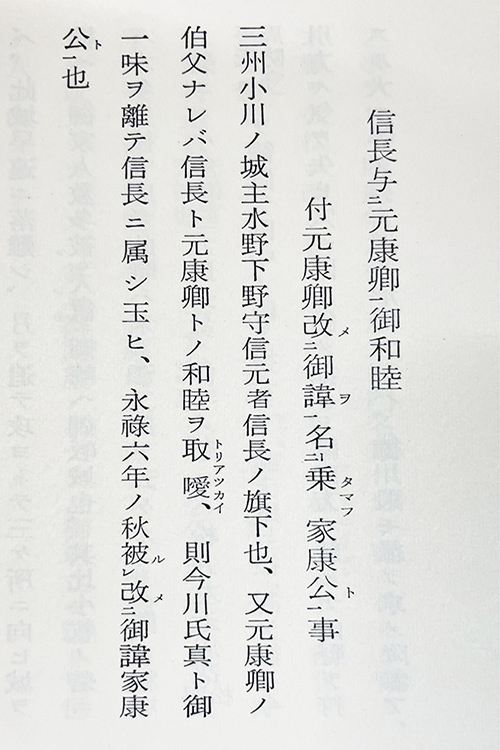 信長与ニ元康卿一御和睦
付元康卿改メニ御諱ヲ一名ニ乗タマフ家康公ト一事
三州小川ノ城主水野下野守信元者信長ノ旗下也、又元康卿ノ
伯父ナレバ信長ト元康卿トノ和睦ヲ取曖トリアツカイ、則今川氏真ト御
一味ヲ離テ信長ニ属シ玉ヒ、永祿六年ノ秋被ルレ改メニ御諱家康
公ト一也